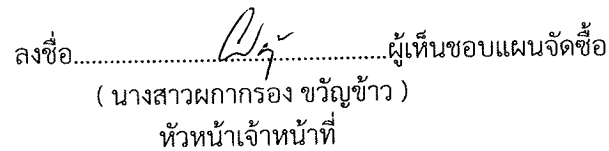 ลงชื่อ................................................ผู้เห็นชอบแผนจัดซื้อ
( นางสาวผกากรอง ขวัญข้าว )
หัวหน้าเจ้าหน้าที่